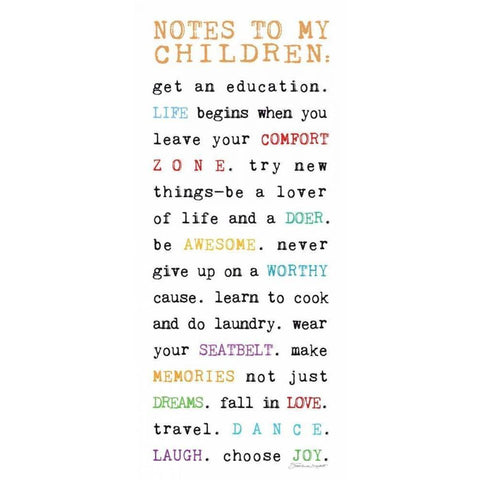 NOTES TO MY
CHILDREN:
get an education.
LIFE begins when you
leave your COMFORT
ZONE. try new
things-be a lover
of life and a DOER.
be AWESOME. never
give up on a WORTHY
cause. learn to cook
and do laundry. wear
your SEATBELT. make
MEMORIES not just
DREAMS. fall in LOVE.
travel. DANCE.
LAUGH. choose JOY.